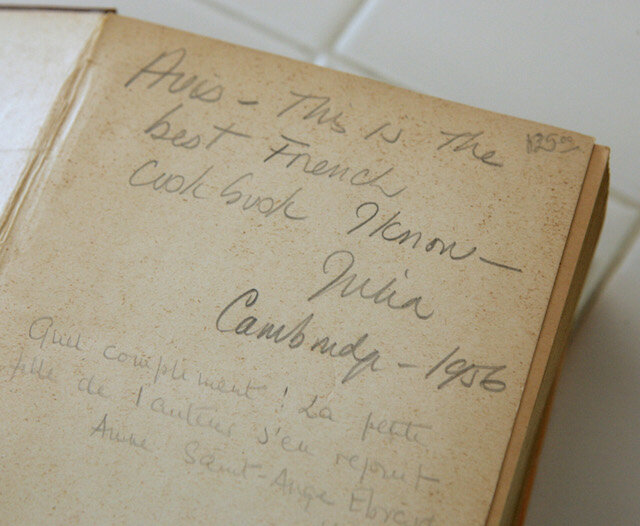 Avis – This is the
125.00
best French
Cookbook I know –
Julia
Cambridge – 1956
Quel compliment ! La petite
fille de l'auteur s'en réjouit
Anne Saint-Ange Ebrard